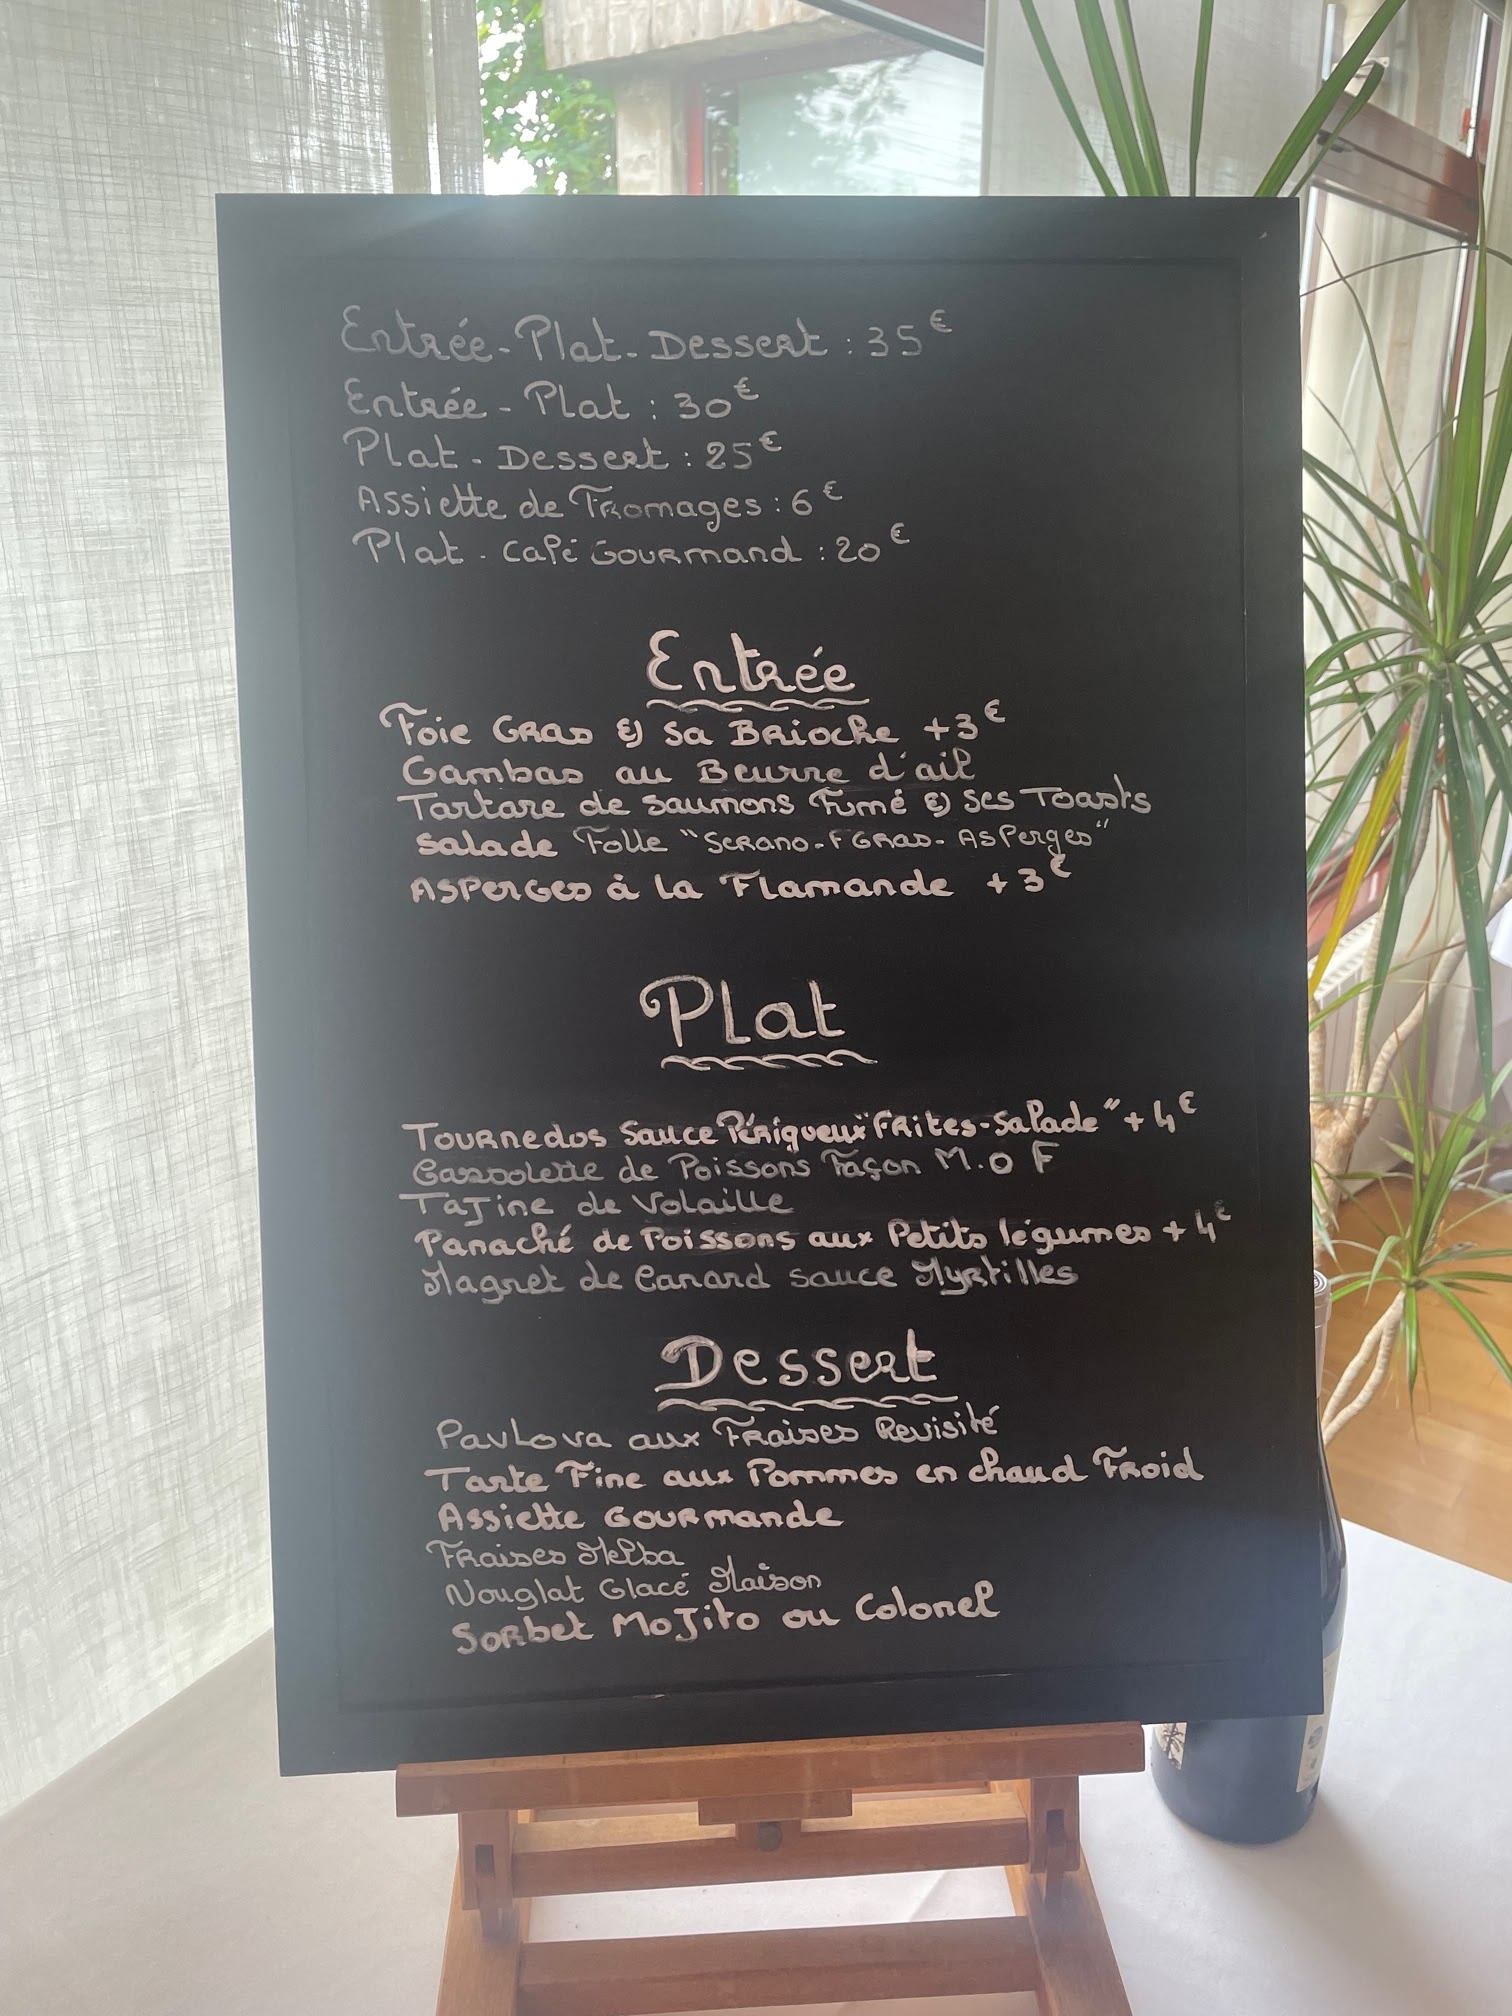 Entrée - Plat - Dessert : 35€
Entrée - Plat : 30€
Plat - Dessert : 25€
Assiette de Fromages : 6€
Plat - Café Gourmand : 20€
Entrée
Foie Gras & Sa Brioche +3€
Gambas au Beurre d'ail
Tartare de saumons Fumé & Ses Toasts
Salade Folle "Serano - F Gras - Asperges"
Asperges à la Flamande +3€
Plat
Tournedos Sauce Périgueux "Frites-Salade" +4€
Cassolette de Poissons Façon M.O F
Tajine de Volaille
Panaché de Poissons aux Petits légumes +4€
Magret de Canard sauce Myrtilles
Dessert
Pavlova aux Fraises Revisité
Tarte Fine aux Pommes en chaud Froid
Assiette Gourmande
Fraises Melba
Nouglat Glacé Maison
Sorbet Mojito ou Colonel